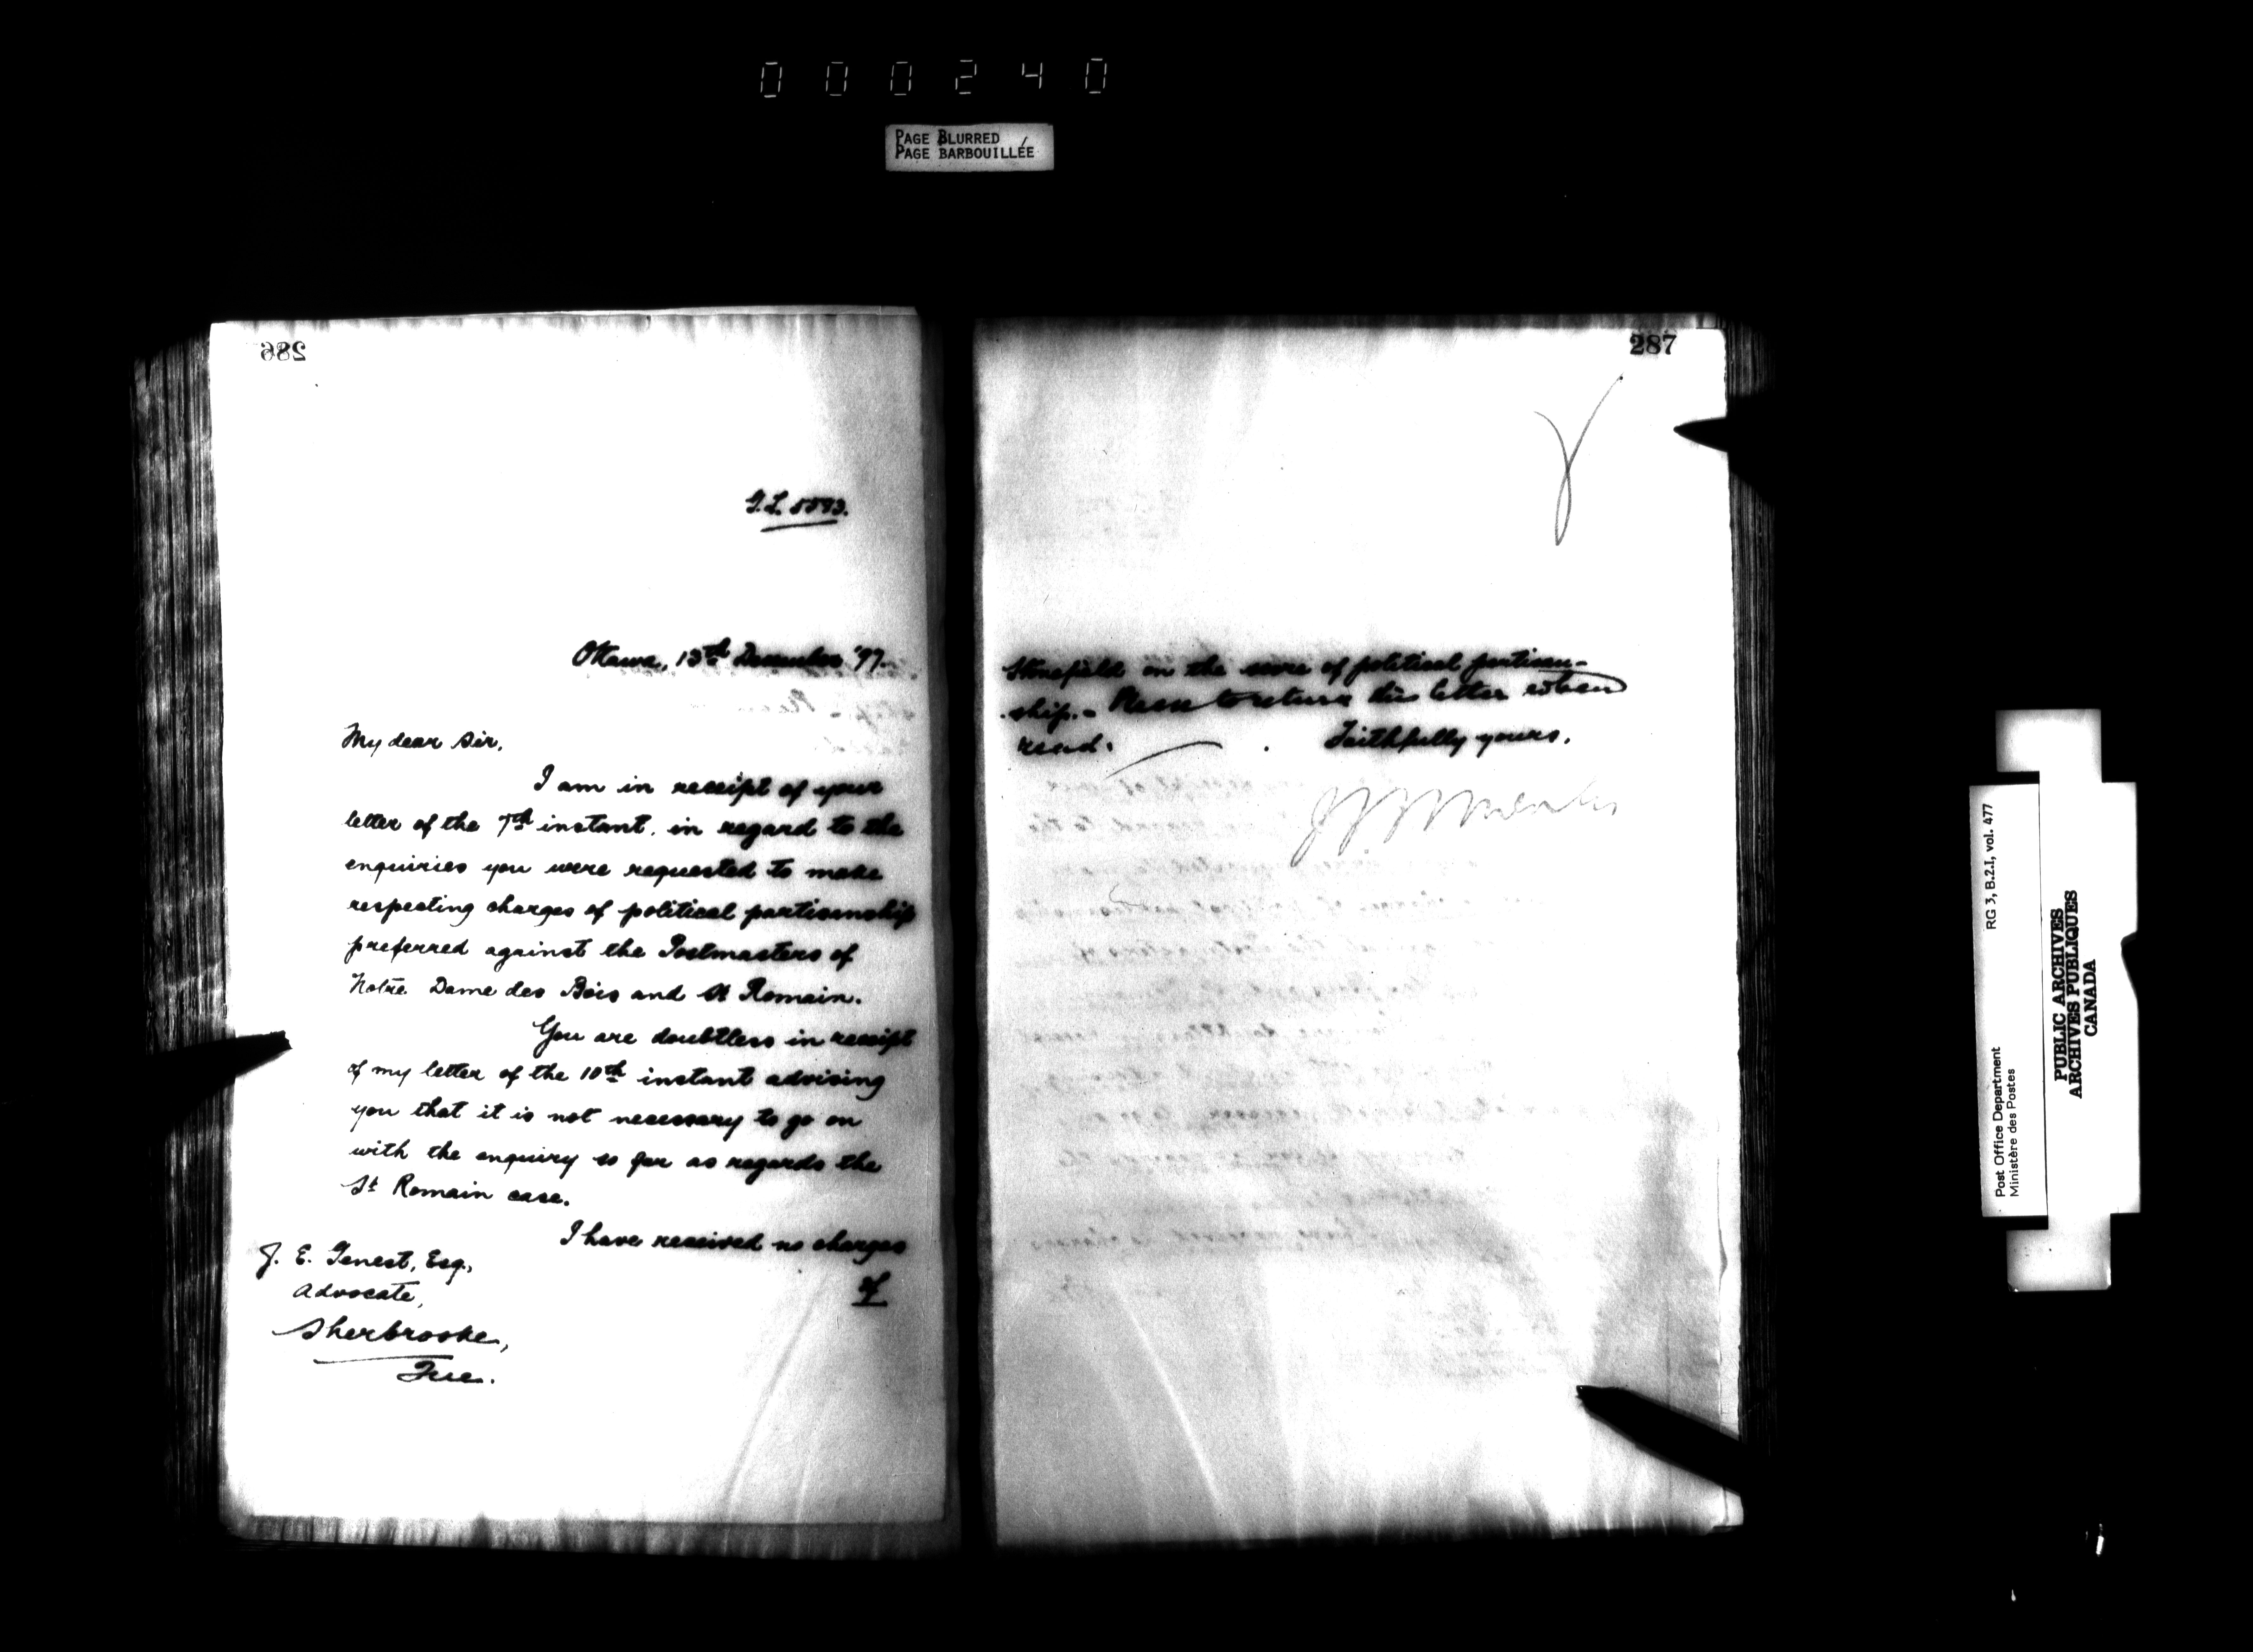 000240
PAGE BLURRED
PAGE BARBOUILLÉE
286
5593.
Ottawa, 13th December '97.
My dear Sir,
I am in receipt of your
letter of the 7th instant, in regard to the
enquiries you were requested to make
respecting charges of political partisanship
preferred against the Postmasters of
Notre Dame des Bois and St Romain.
You are doubtless in receipt
of my letter of the 10th instant advising
you that it is not necessary to go on
with the enquiry so far as regards the
St Romain case.
I have received no charges
of
J. E. Genest, Esq.,
Advocate,
Sherbrooke,
Que.
287
Stonefield on the score of political partisan-
ship. - Please to return this letter when
read.
Faithfully yours,
Post Office Department
Ministère des Postes
RG 3, B.2.1, vol. 477
PUBLIC ARCHIVES
ARCHIVES PUBLIQUES
CANADA